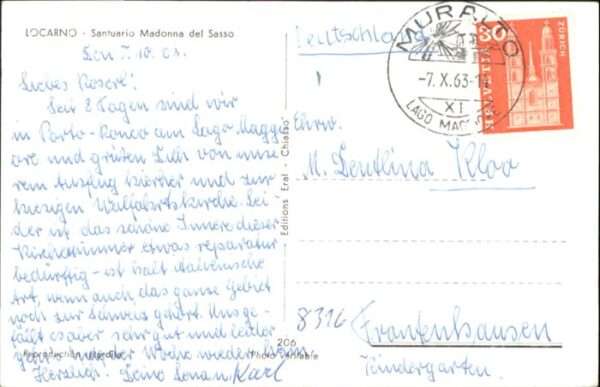 LOCARNO - Santuario Madonna del Sasso
Den 7. 10. 63.
Liebes Roserl!
Seit 2 Tagen sind wir
in Porto-Ronco am Lago Maggi-
ore und grüßen Dich von unse
rem Ausflug hierher und zur
hiesigen Wallfahrtskirche. Lei
der ist das schöne Innere dieser
Kirche immer etwas reparatur
bedürftig - ist halt italienische
Art, wenn auch das ganze Gebiet
noch zur Schweiz gehört. Uns ge-
fällt es aber sehr gut und leider
Woche wieder
Herzligst. Deine
Karl
Editions Eral - Chiasso
206
Deutschland
MURALTO
-7. X. 63-
XI
LAGO MAG
30
HELVETIA
ZÜRICH
Ehrw.
M. Dentlina Kloo
8316 Frontenhausen
Kindergarten.